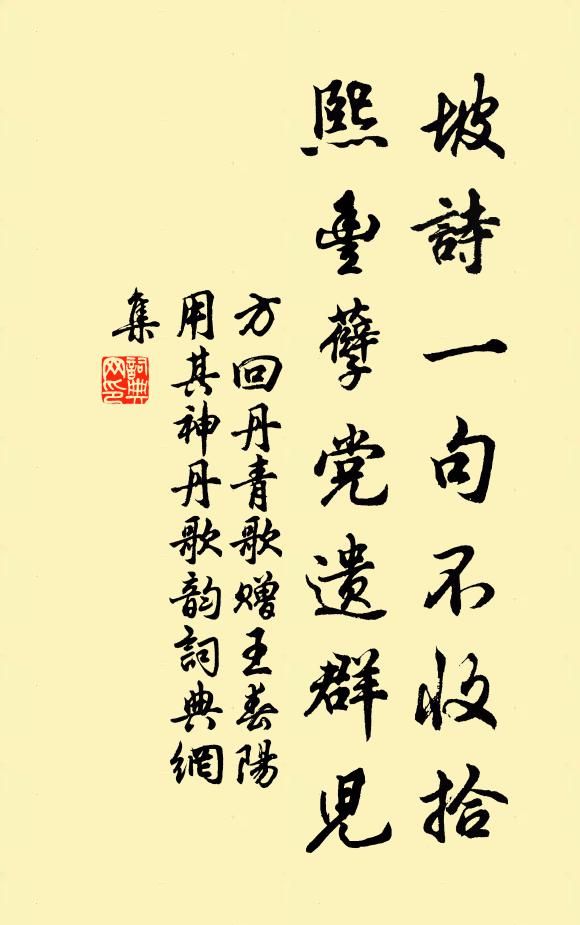 坡詩一句不收拾
熙豐孽党遺群児
方回丹青歌贈王春陽
用其神丹歌韵詞典網
集
詞典網印